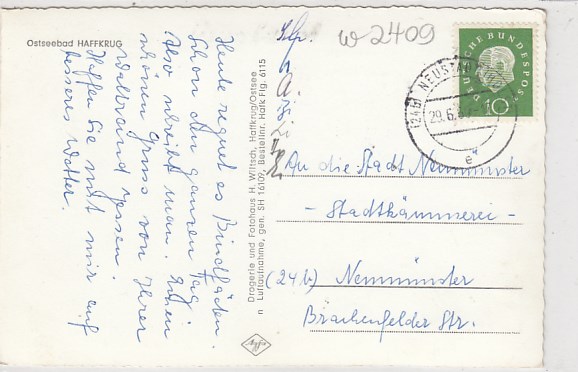 Ostseebad HAFFKRUG
Heute regnet es Bindfäden.
Schon den ganzen Tag.
Also schreibt man. Einen
schönen Gruss von Ihrer
Waltraud Jessen.
Hoffen Sie mit mir auf
besseres Wetter.
Drogerie und Fotohaus H. Wittsch, Haffkrug/Ostsee
n Luftaufnahme, gen. SH 16/09, Bestellnr. Hafk Flg. 6115
w 2409
DEUTSCHE BUNDESPOST
10
(24b) NEUSTADT
29.6.
e
An die Stadt Neumünster
- Stadtkämmerei -
(24b) Neumünster
Brachenfelder Str.
Agfa